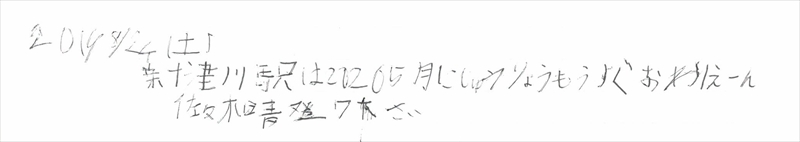 2019 8/24 (土)
新十津川駅は2020 5月にしゅうりょうもうすぐおわかえーん
佐々木晴登 7才